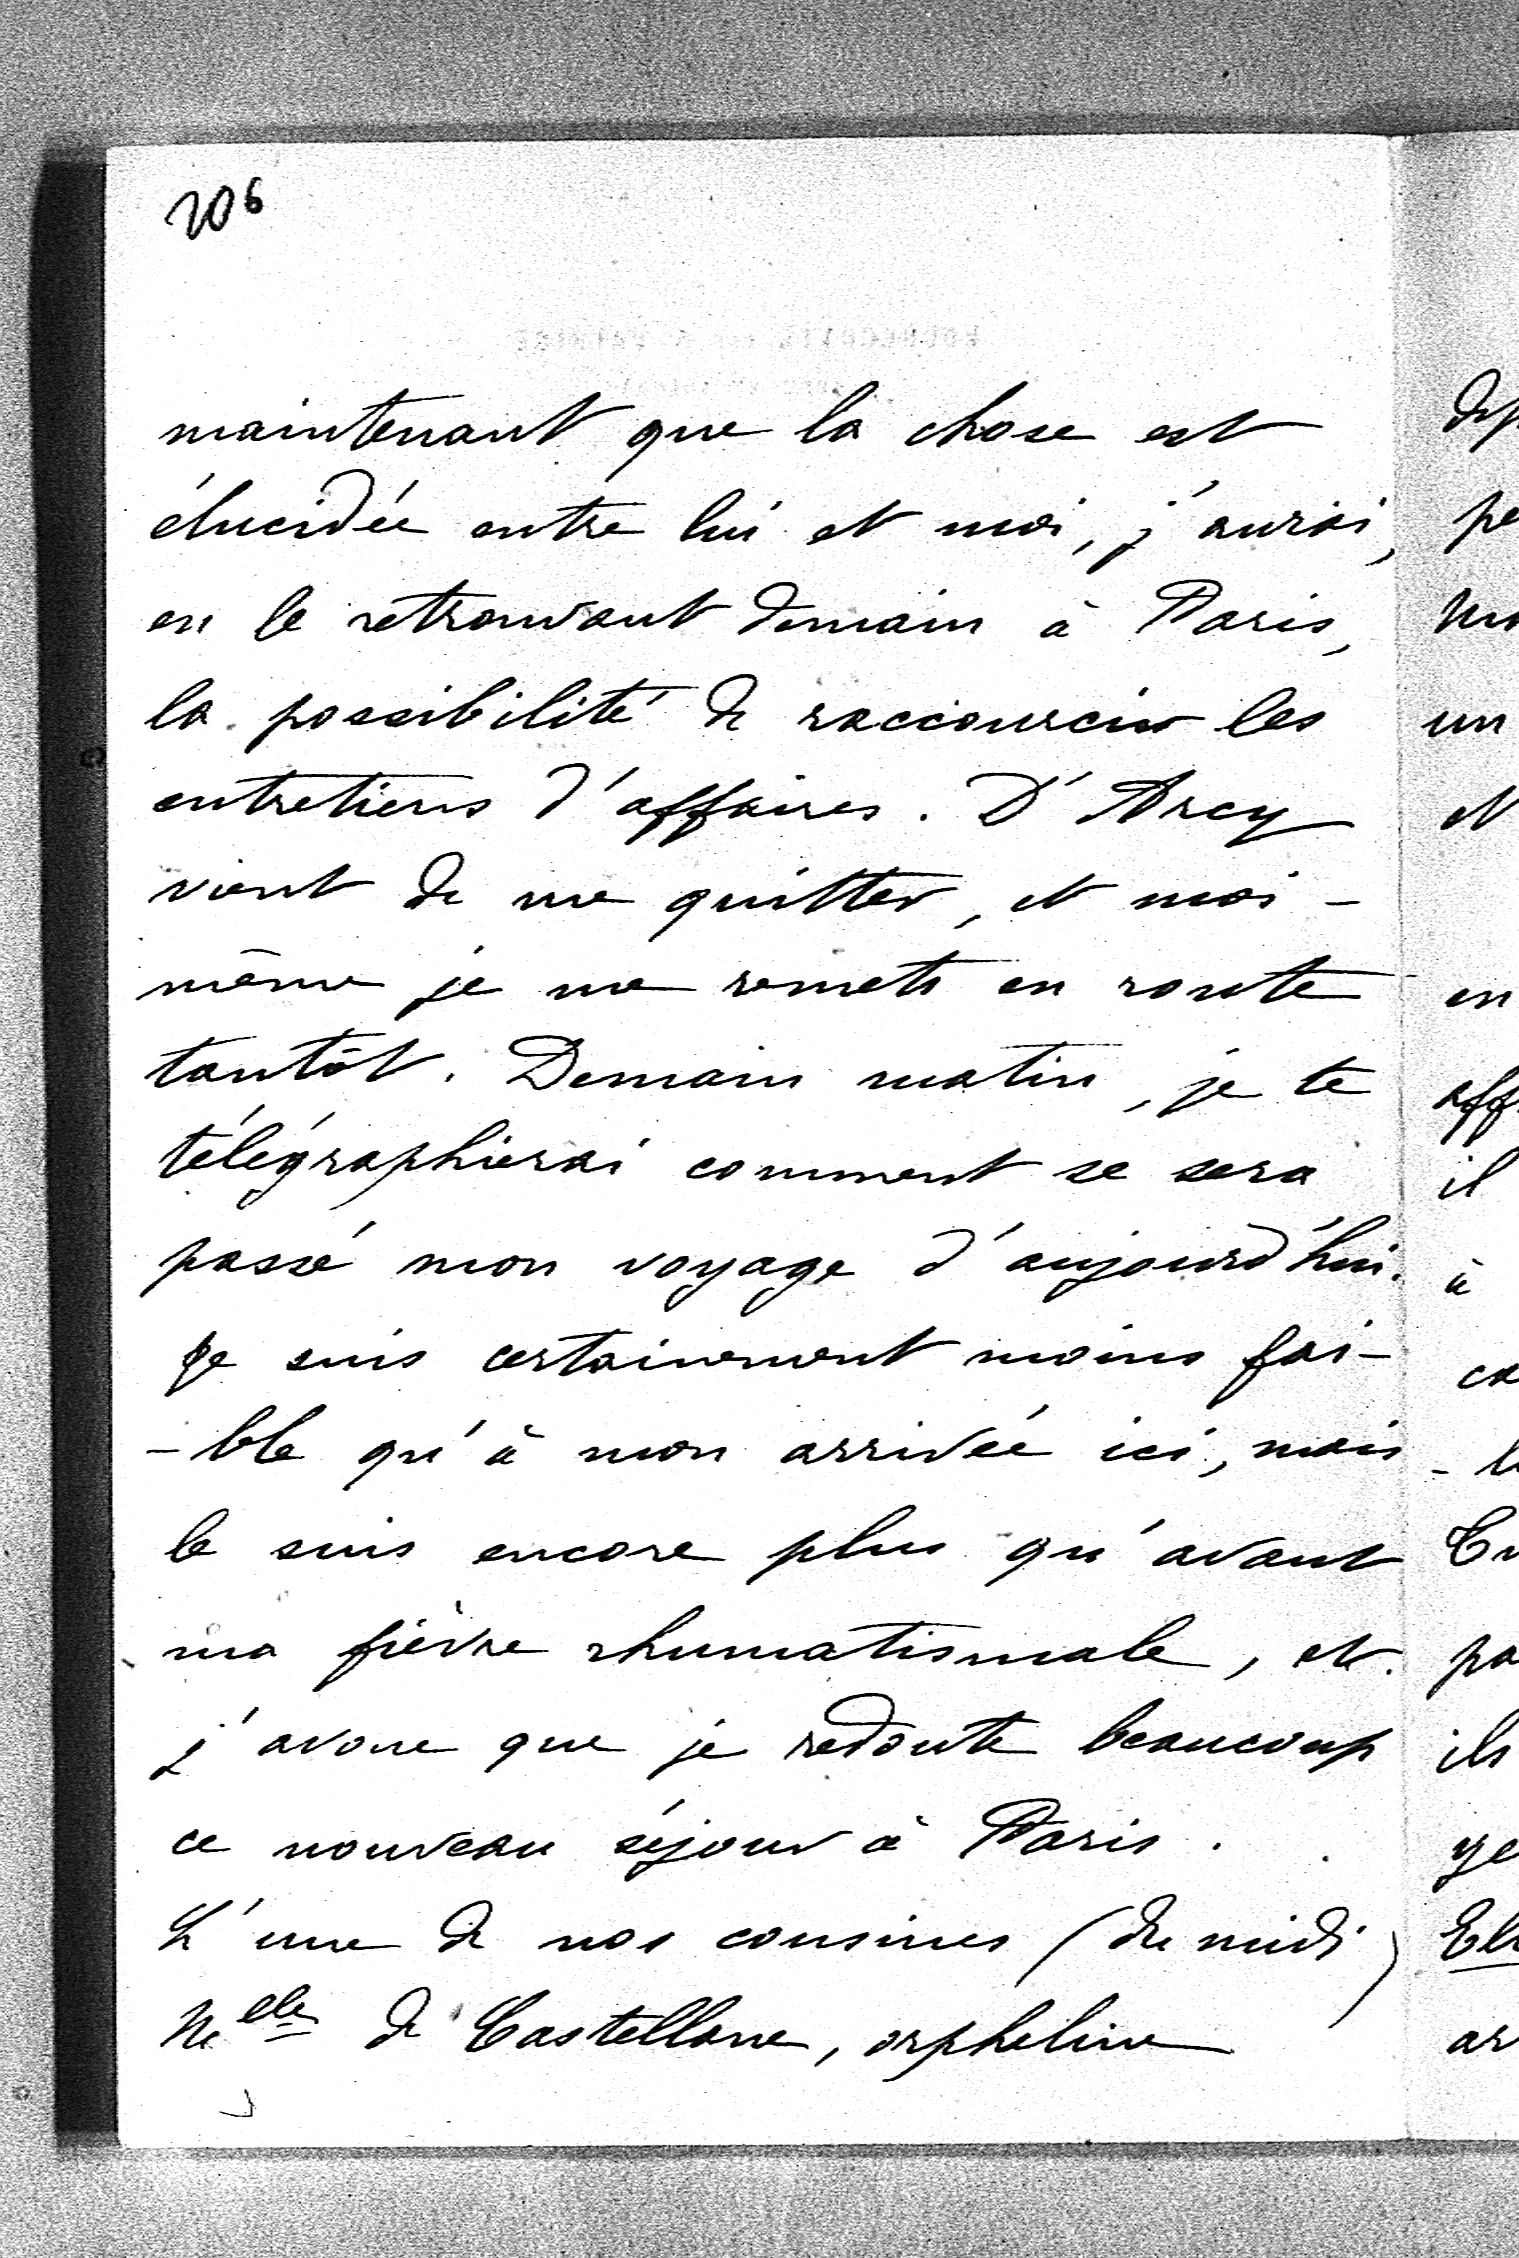 206
maintenant que la chose est
élucidée entre lui et moi, j'aurai,
en le retrouvant demain à Paris,
la possibilité de raccourcir les
entretiens d'affaires. D'Arcy
vient de me quitter, et moi-
même je me remets en route
tantôt. Demain matin, je te
télégraphierai comment se sera
passé mon voyage d'aujourd'hui.
Je suis certainement moins fai-
-ble qu'à mon arrivée ici, mais
le suis encore plus qu'avant
ma fièvre rhumatismale, et
j'avoue que je redoute beaucoup
ce nouveau séjour à Paris.
L'une de nos cousines (du midi)
Melle de Castellane, orpheline